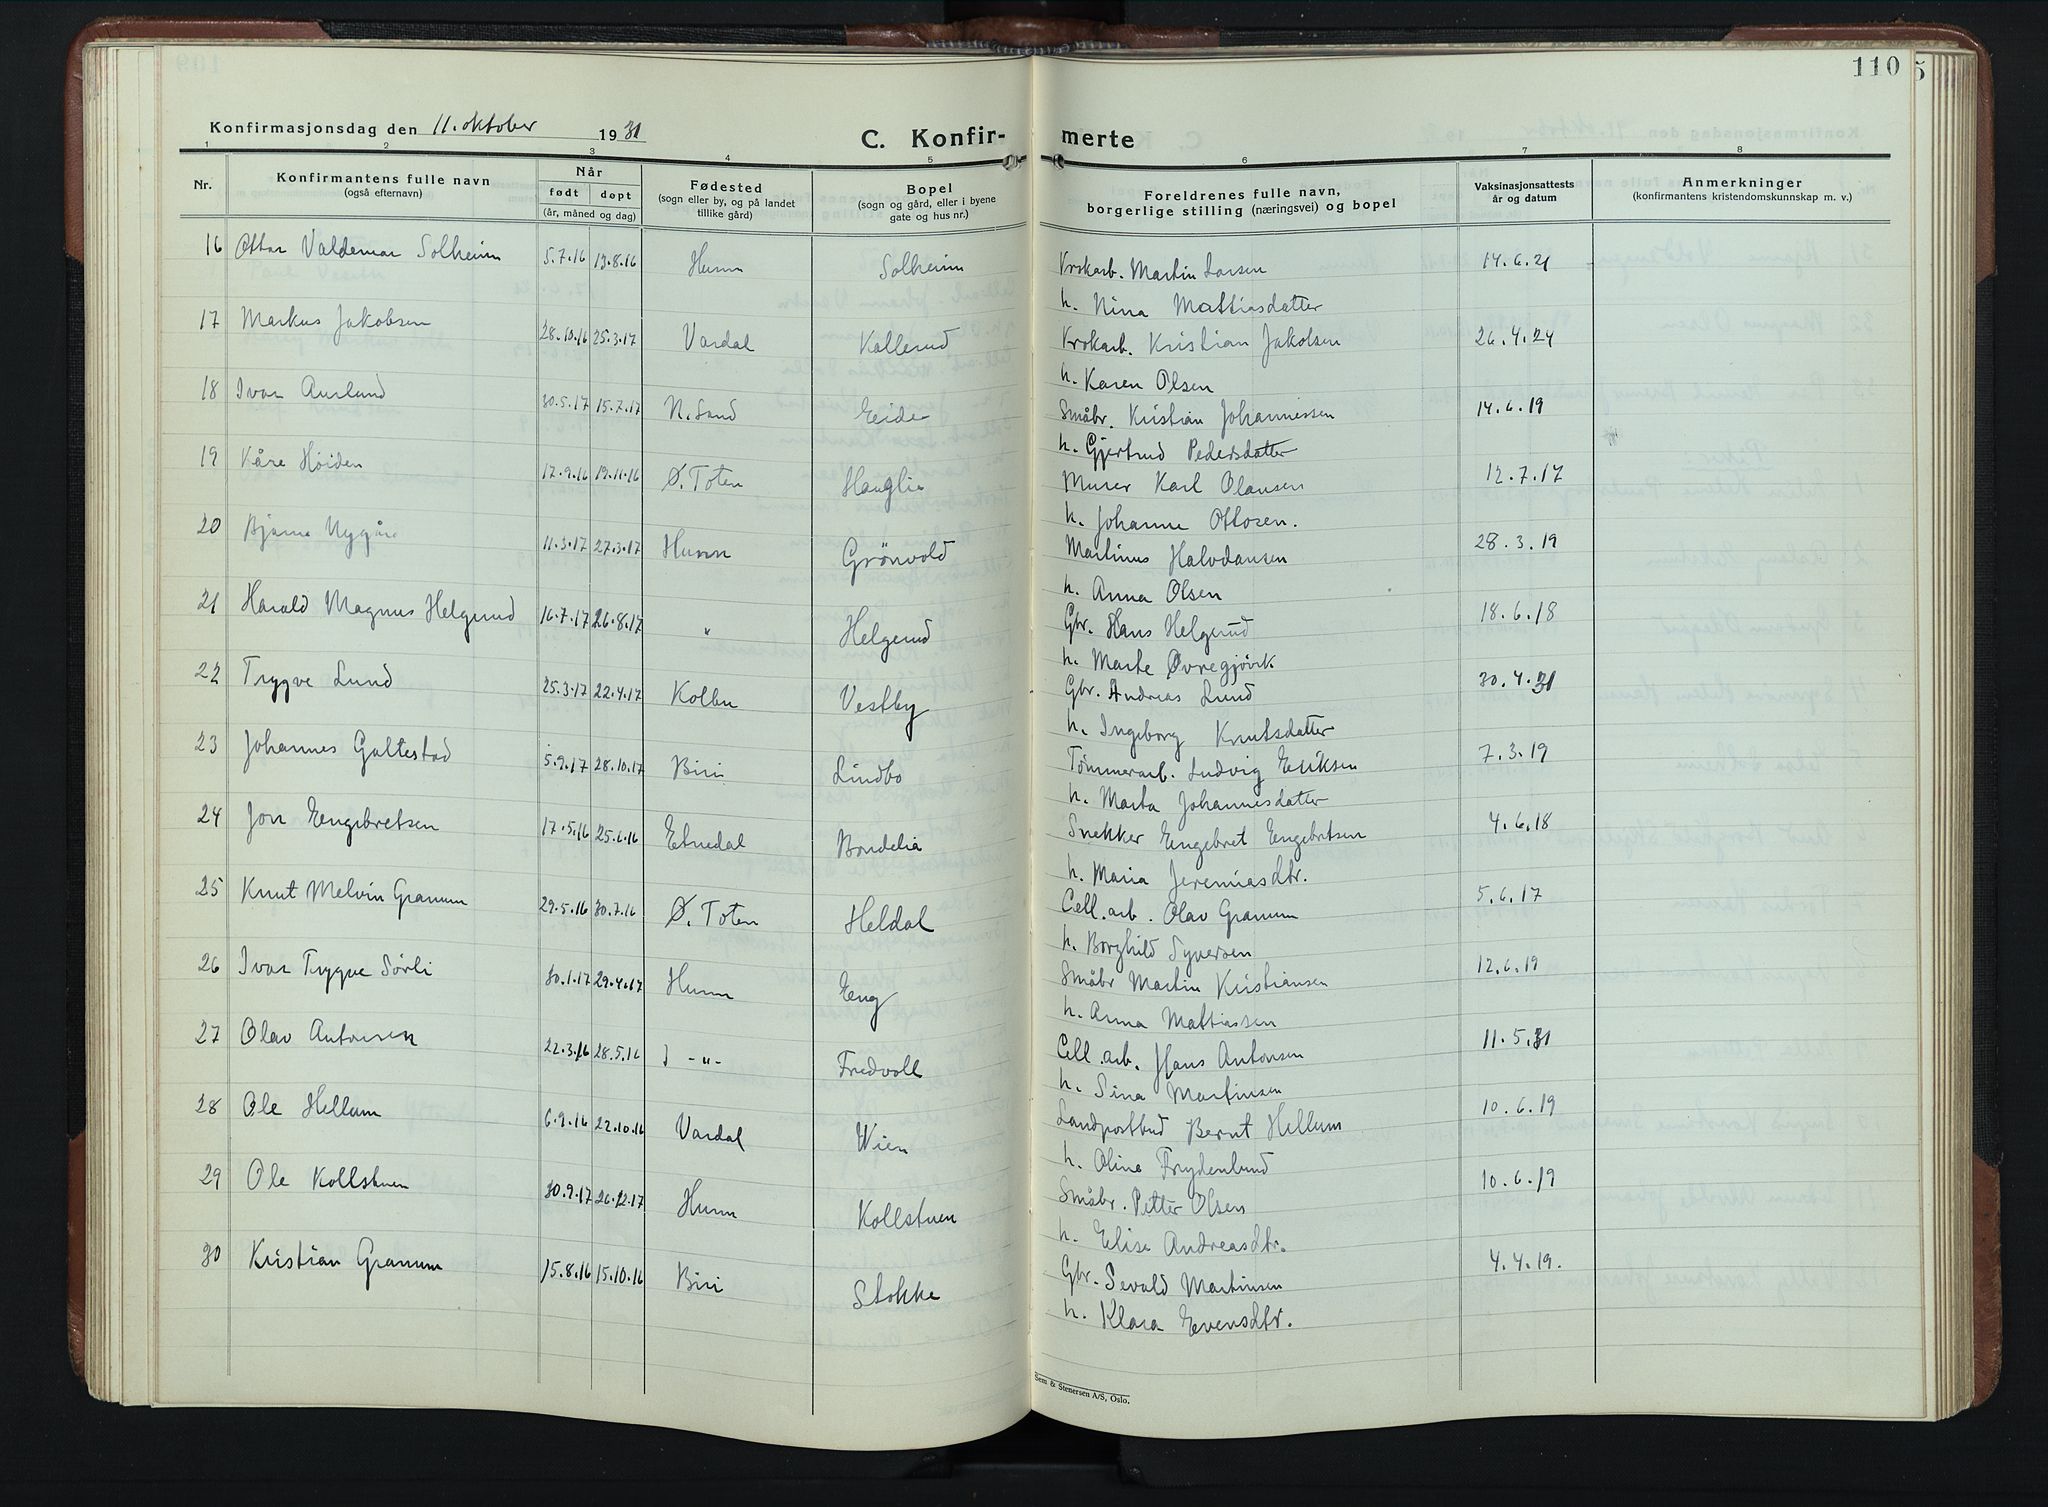 110
5
Konfirmasjonsdag den 11. oktober 1931
C. Konfir- merte
1 2 3 4 5 6 7 8
Nr.
Konfirmantens fulle navn
(også efternavn)
Når
født døpt
(år, måned og dag)
Fødested
(sogn eller by, og på landet
tillike gård)
Bopel
(sogn og gård, eller i byene
gate og hus nr.)
Foreldrenes fulle navn,
borgerlige stilling (næringsvei) og bopel
Vaksinasjonsattests
år og datum
Anmerkninger
(konfirmantens kristendomskunnskap m. v.)
16 Ottar Valdemar Solheim 5.7.16 13.8.16 Hunn Solheim Krokarb. Martin Larsen 14.6.21
h. Nina Mattiasdatter
17 Markus Jakobsen 28.10.16 25.3.17 Vardal Kallerud Krokarb. Kristian Jakobsen 26.4.24
h. Karen Olsen
18 Ivar Aurlund 30.5.17 15.7.17 N. Land Eide Småbr. Kristian Johannessen 14.6.19
h. Gjertrud Pedersdatter
19 Kåre Høiden 17.9.16 19.11.16 Ø. Toten Hauglie Murer Karl Olausen 12.7.17
h. Johanne Ottosen.
20 Bjarne Nygård 11.3.17 27.3.17 Hunn Grönvold Martinus Halvdansen 28.3.19
h. Anna Olsen
21 Harald Magnus Helgerud 16.7.17 26.8.17 " Helgerud Gbr. Hans Helgerud 18.6.18
h. Marte Øvregjövik
22 Trygve Lund 25.3.17 22.4.17 Kolbu Vestby Gbr. Andreas Lund 30.4.31
h. Ingeborg Knutsdatter
23 Johannes Galtestad 5.9.17 28.10.17 Biri Lindbo Tømmerarb. Ludvig Eriksen 7.3.19
h. Marta Johannesdatter
24 Jon Engebretsen 17.5.16 25.6.16 Etnedal Bondelia Snekker Engebret Engebretsen 4.6.18
h. Maria Jeremiasdtr.
25 Knut Melvin Granum 29.5.16 30.7.16 Ø. Toten Heldal Cell.arb. Olav Granum 5.6.17
h. Borghild Syversen
26 Ivar Trygve Sörli 30.1.17 29.4.17 Hunn Eng Småbr Martin Kristiansen 12.6.19
h. Anna Mattiassen
27 Olav Antonsen 22.3.16 28.5.16 -"- Fredvoll Cell.arb. Hans Antonsen 11.5.31
h. Sina Martinsen
28 Ole Hellum 6.9.16 22.10.16 Vardal Wien Landpostbud Bernt Hellum 10.6.19
h. Oline Frydenlund
29 Ole Kollstuen 30.9.17 26.12.17 Hunn Kollstuen Småbr. Petter Olsen 10.6.19
h. Elise Andreasdtr.
30 Kristian Granum 15.8.16 15.10.16 Biri Stokke Gbr. Sevald Martinsen 4.4.19.
h. Klara Evensdtr.
Sem & Stenersen A/S, Oslo.